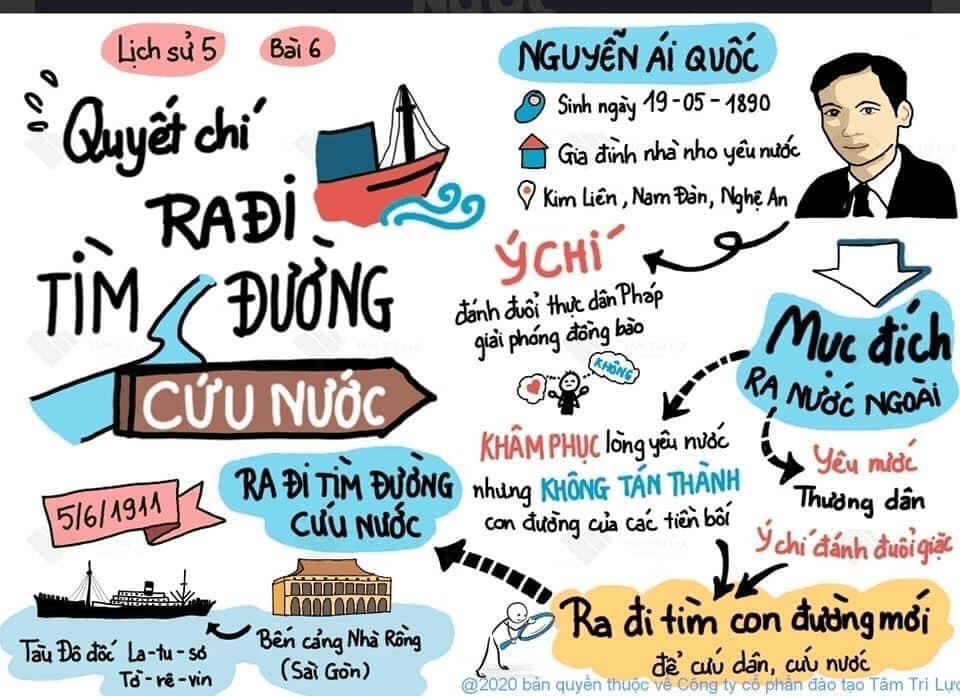 Lịch sử 5
Bài 6
Quyết chí
RA ĐI
TÌM ĐƯỜNG
CỨU NƯỚC
NGUYỄN ÁI QUỐC
Sinh ngày 19-05-1890
Gia đình nhà nho yêu nước
Kim Liên, Nam Đàn, Nghệ An
Ý CHÍ
đánh đuổi thực dân Pháp
giải phóng đồng bào
KHÔNG
Mục đích
RA NƯỚC NGOÀI
KHÂM PHỤC lòng yêu nước
nhưng KHÔNG TÁN THÀNH
con đường của các tiền bối
Yêu nước
Thương dân
Ý chí đánh đuổi giặc
Ra đi tìm con đường mới
để cứu dân, cứu nước
RA ĐI TÌM ĐƯỜNG
CỨU NƯỚC
5/6/1911
Bến cảng Nhà Rồng
(Sài Gòn)
Tàu Đô đốc La-tu-sơ
Tờ-rê-vin
@2020 bản quyền thuộc về Công ty cổ phần đào tạo Tâm Trí Lực